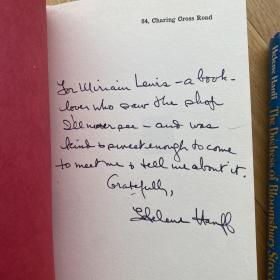 84, Charing Cross Road
For Miriam Lewis – a book-
lover who saw the shop
I'll never see – and was
kind & sweet enough to come
to meet me & tell me about it.
Gratefully,
Helene Hanff
Helene Hanff The Duchess of Bloomsbury Street